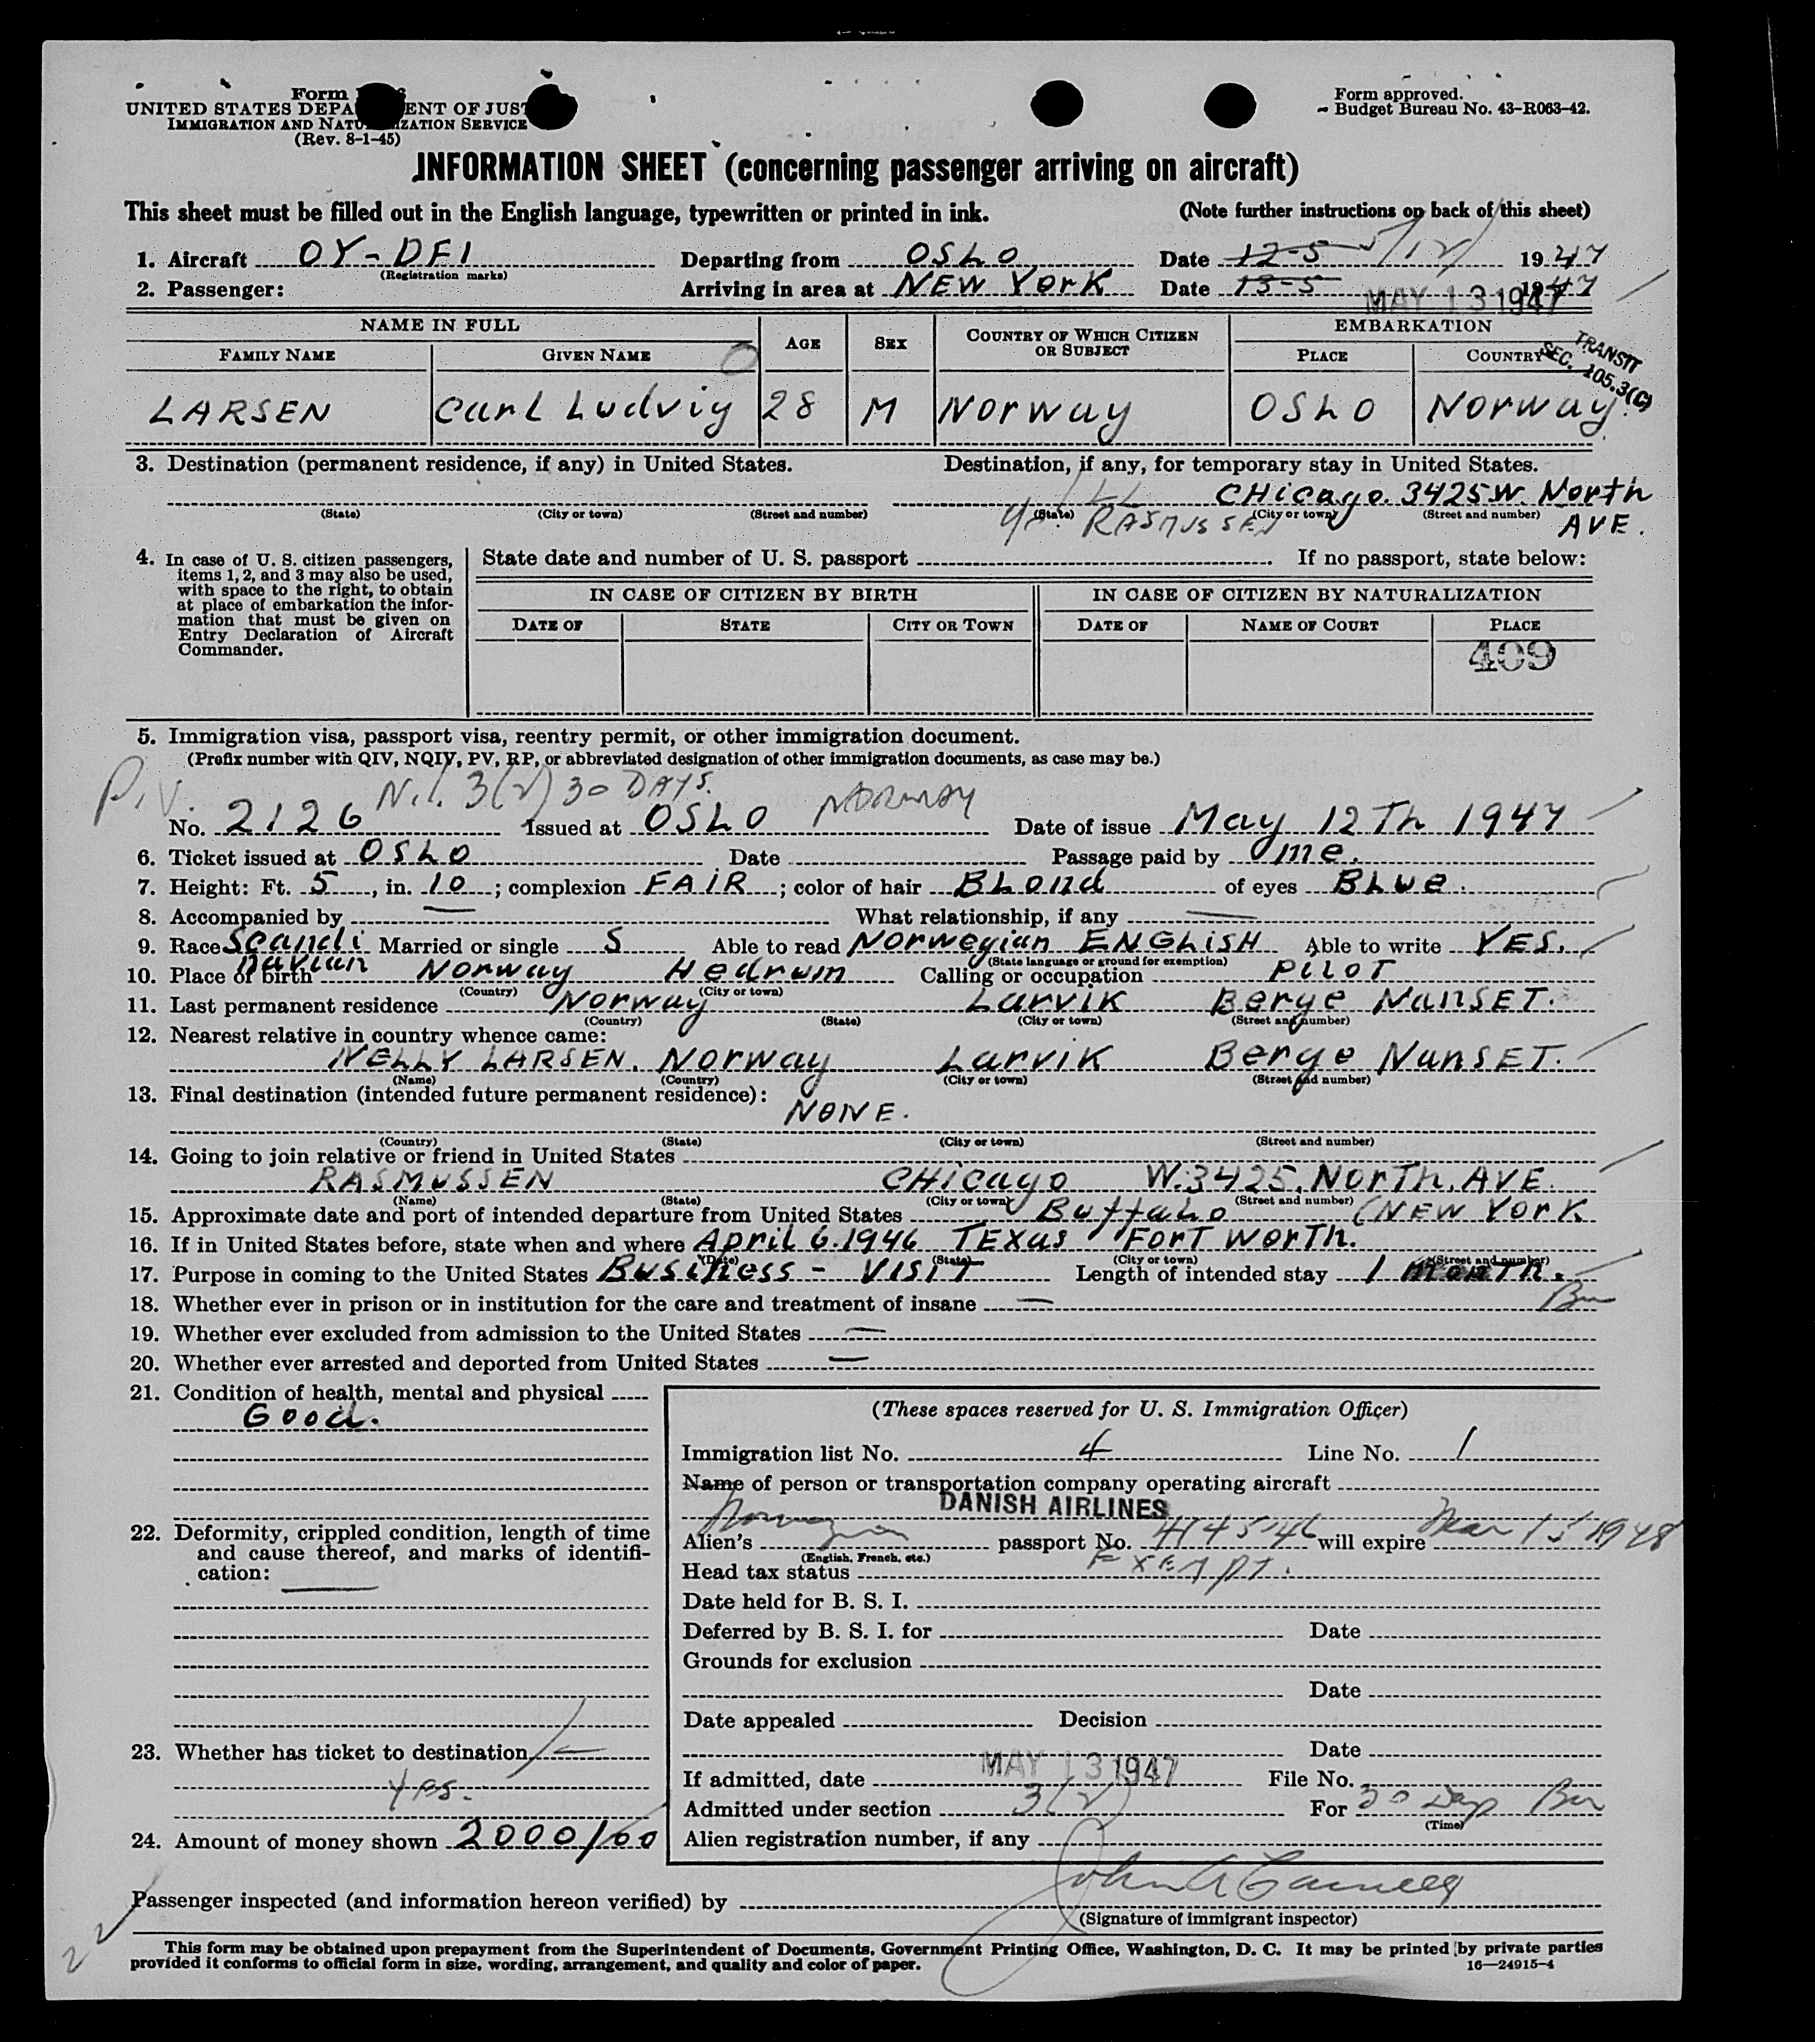 Form
UNITED STATES DEPA ENT OF JUST
IMMIGRATION AND NATU IZATION SERVICE
(Rev. 8-1-45)
Form approved.
Budget Bureau No. 43-R063-42.
INFORMATION SHEET (concerning passenger arriving on aircraft)
This sheet must be filled out in the English language, typewritten or printed in ink. (Note further instructions on back of this sheet)
1. Aircraft OY-DFI Departing from OSLO Date 12-5 5/12/ 1947
(Registration marks)
2. Passenger: Arriving in area at NEW YorK Date 13-5 MAY 13 1947 1947
NAME IN FULL AGE SEX COUNTRY OF WHICH CITIZEN OR SUBJECT EMBARKATION
FAMILY NAME GIVEN NAME PLACE COUNTRY
TRANSIT
SEC. 105.3(C)
LARSEN Carl Ludvig 28 M Norway OSLO Norway.
3. Destination (permanent residence, if any) in United States. Destination, if any, for temporary stay in United States.
CHicago. 3425 W. North
(State) (City or town) (Street and number) (State) (City or town) (Street and number)
RASMUSSEN AVE.
4. In case of U. S. citizen passengers, items 1, 2, and 3 may also be used, with space to the right, to obtain at place of embarkation the information that must be given on Entry Declaration of Aircraft Commander.
State date and number of U. S. passport If no passport, state below:
IN CASE OF CITIZEN BY BIRTH IN CASE OF CITIZEN BY NATURALIZATION
DATE OF STATE CITY OR TOWN DATE OF NAME OF COURT PLACE
409
5. Immigration visa, passport visa, reentry permit, or other immigration document.
(Prefix number with QIV, NQIV, PV, RP, or abbreviated designation of other immigration documents, as case may be.)
P.V. N.I. 3(2) 30 DAYS. NORWAY
No. 2126 Issued at OSLO Date of issue May 12Th 1947
6. Ticket issued at OSLO Date Passage paid by me.
7. Height: Ft. 5, in. 10; complexion FAIR; color of hair BLond of eyes BLue.
8. Accompanied by — What relationship, if any —
9. Race Scandi Married or single S Able to read Norwegian ENGLISH Able to write YES.
navian (State language or ground for exemption)
10. Place of birth Norway Hedrum Calling or occupation PILOT
(Country) (City or town)
11. Last permanent residence Norway Larvik Berge NanSET.
(Country) (State) (City or town) (Street and number)
12. Nearest relative in country whence came:
NELLY LARSEN. Norway Larvik Berge NanSET.
(Name) (Country) (City or town) (Street and number)
13. Final destination (intended future permanent residence):
NONE.
(Country) (State) (City or town) (Street and number)
14. Going to join relative or friend in United States
RASMUSSEN CHicago W. 3425, NorTh. AVE.
(Name) (State) (City or town) (Street and number)
15. Approximate date and port of intended departure from United States Buffalo (NEW York
16. If in United States before, state when and where April 6. 1946 TEXas ForT WorTh.
(Date) (State) (City or town) (Street and number)
17. Purpose in coming to the United States Business - VISIT Length of intended stay 1 monTh.
18. Whether ever in prison or in institution for the care and treatment of insane —
19. Whether ever excluded from admission to the United States —
20. Whether ever arrested and deported from United States —
21. Condition of health, mental and physical
Good.
22. Deformity, crippled condition, length of time and cause thereof, and marks of identification: —
23. Whether has ticket to destination —
yes.
24. Amount of money shown 2000/00
(These spaces reserved for U. S. Immigration Officer)
Immigration list No. 4 Line No. 1
Name of person or transportation company operating aircraft
DANISH AIRLINES
Alien's Norwegian passport No. 414546 will expire Mar 15 1948
(English, French, etc.)
Head tax status Exempt.
Date held for B. S. I.
Deferred by B. S. I. for Date
Grounds for exclusion
Date
Date appealed Decision
Date
If admitted, date MAY 13 1947 File No.
Admitted under section 3(2) For 30 Days
(Time)
Alien registration number, if any
Passenger inspected (and information hereon verified) by John A
(Signature of immigrant inspector)
This form may be obtained upon prepayment from the Superintendent of Documents, Government Printing Office, Washington, D. C. It may be printed by private parties
provided it conforms to official form in size, wording, arrangement, and quality and color of paper. 16—24915-4